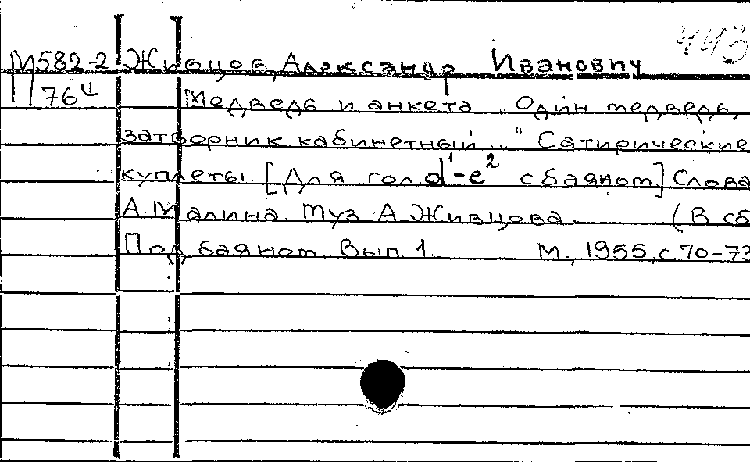 443
М582-2 Живцов, Александр Иванович
1176ч Медведь и анкета. „Один медведь,
затворник кабинетный..." Сатирические
куплеты. [Для гол. d¹-e² с баяном] Слова
А. Малина. Муз. А. Живцова. (В сб.
Под баяном. Вып. 1. М., 1955, с. 70-73